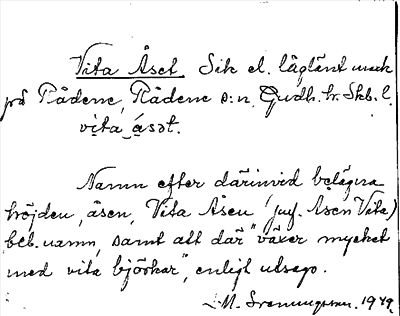 Vita Åset. Sik el. låglänt mark
på Rådene, Rådene s:n, Gudh. hr. Skb. l.
vita åsət.
Namn efter därinvid belägna
höjden, åsen, Vita Åsen (jmf. Åsen Vita)
beb. namn, samt att där "växer mycket
med vita björkar", enligt utsago.
M. 1949.